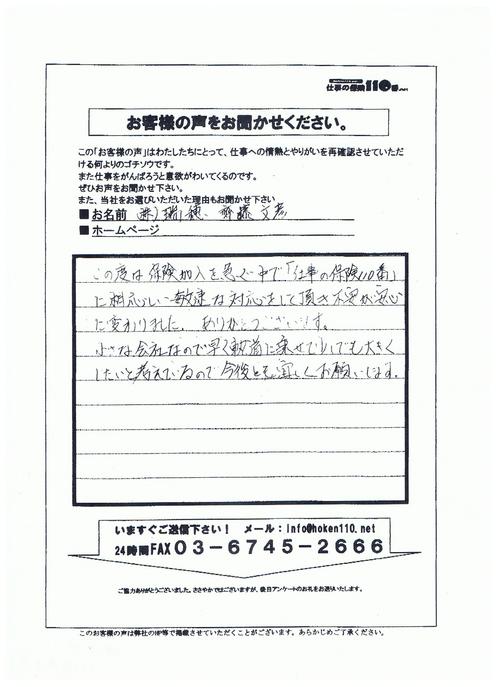 仕事の保険110番
お客様の声をお聞かせください。
この「お客様の声」はわたしたちにとって、仕事への情熱とやりがいを再確認させていただ
ける何よりのゴチソウです。
また仕事をがんばろうと意欲がわいてくるのです。
ぜひお声をお聞かせ下さい。
また、当社をお選びいただいた理由もお聞かせ下さい
■お名前 瑞穂 齊藤文彦
■ホームページ
この度は保険加入を急ぐ中で「仕事の保険110番」
に相応しい敏速な対応をして頂き不安が安心
に変わりました。ありがとうございます。
小さな会社なので早く軌道に乗せて少しでも大きく
したいと考えているので今後とも宜しくお願いします。
いますぐご送信下さい! メール:info@hoken110.net
24時間FAX03-6745-2666
ご協力ありがとうございました。ささやかではございますが、後日アンケートのお礼をお送りいたします。
このお客様の声は弊社のHP等で掲載させていただくことがございます。あらかじめご了承ください。